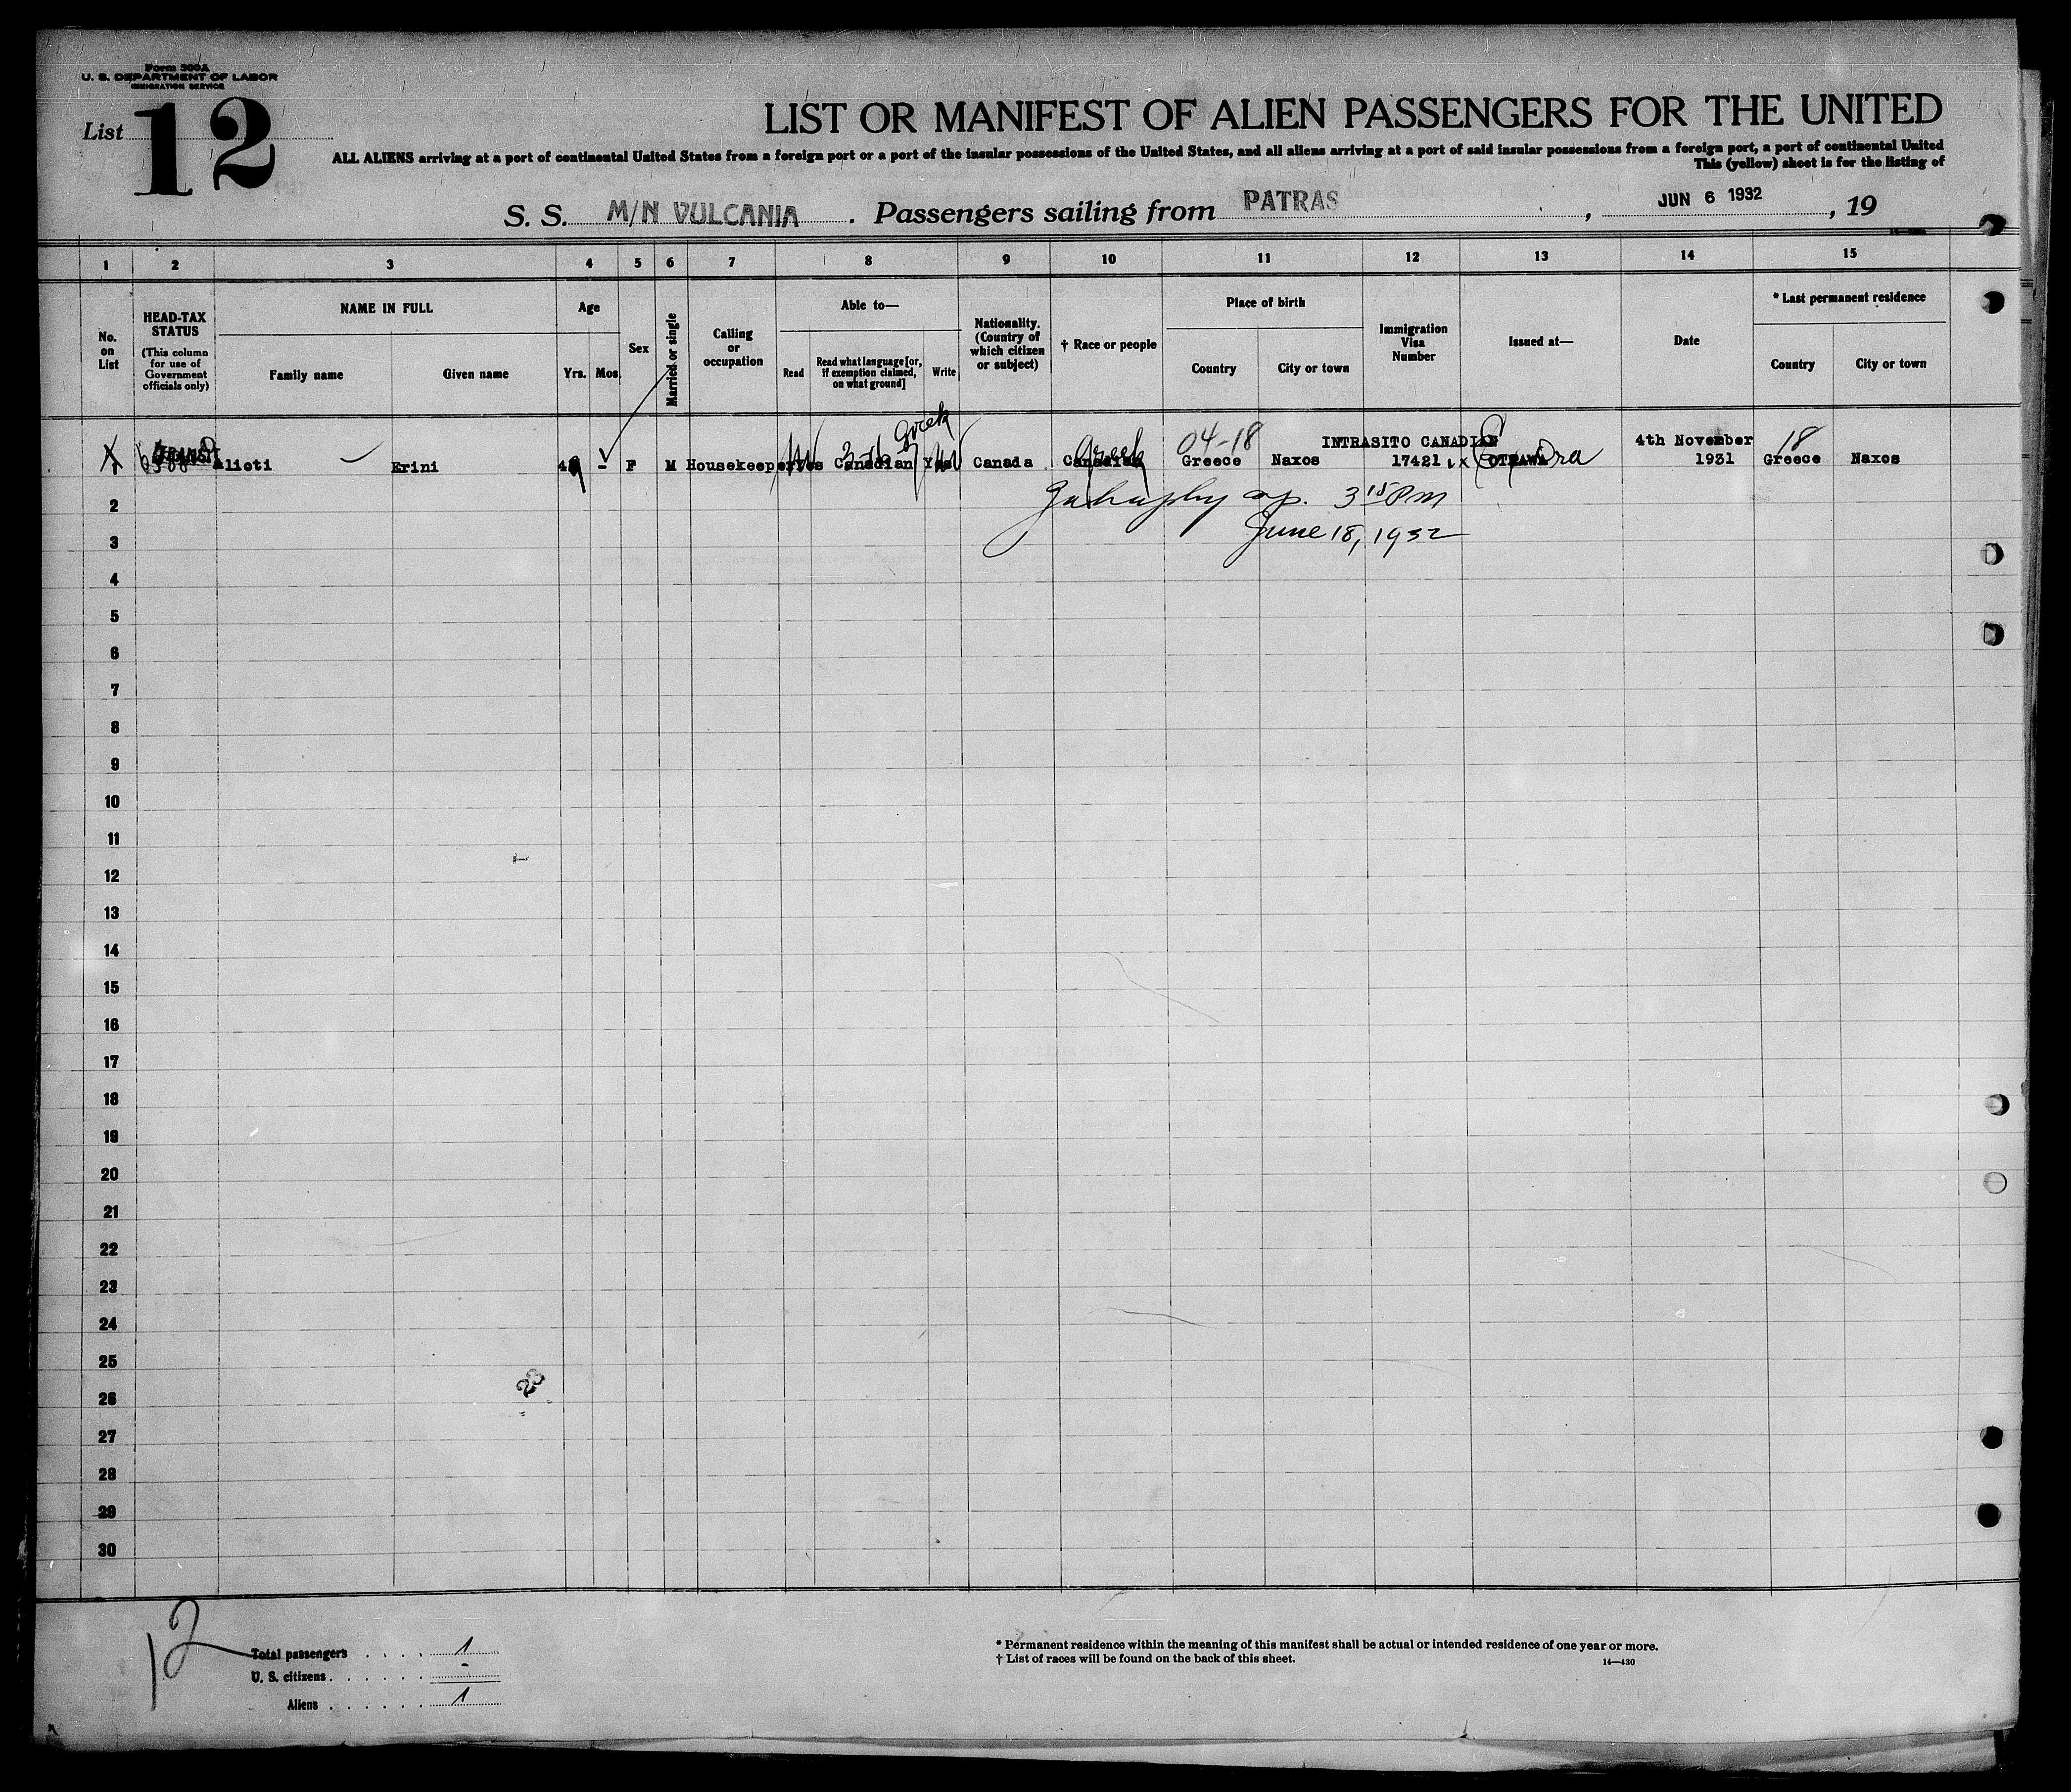 Form 500A
U. S. DEPARTMENT OF LABOR
IMMIGRATION SERVICE
List 12
LIST OR MANIFEST OF ALIEN PASSENGERS FOR THE UNITED
ALL ALIENS arriving at a port of continental United States from a foreign port or a port of the insular possessions of the United States, and all aliens arriving at a port of said insular possessions from a foreign port, a port of continental United
This (yellow) sheet is for the listing of
S. S. M/N VULCANIA. Passengers sailing from PATRAS, JUN 6 1932, 19
1 2 3 4 5 6 7 8 9 10 11 12 13 14 15
No. on List
HEAD-TAX STATUS
(This column for use of Government officials only)
NAME IN FULL
Family name Given name
Age
Yrs. Mos.
Sex
Married or single
Calling or occupation
Able to—
Read
Read what language [or, if exemption claimed, on what ground]
Write
Nationality. (Country of which citizen or subject)
† Race or people
Place of birth
Country City or town
Immigration Visa Number
Issued at—
Date
* Last permanent residence
Country City or town
Greek
Greek 04-18 INTRASITO CANADIAN 4th November 18
Alioti Erini 49 - F M Housekeeper Yes Canadian Yes Canada Canadian Greece Naxos 17421 OTTAWA 1931 Greece Naxos
3 15 PM
June 18, 1932
2
3
4
5
6
7
8
9
10
11
12
13
14
15
16
17
18
19
20
21
22
23
24
25
26
27
28
29
30
28
12
Total passengers . . . . 1
U. S. citizens . . . . . . -
Aliens . . . . . . 1
* Permanent residence within the meaning of this manifest shall be actual or intended residence of one year or more.
† List of races will be found on the back of this sheet.
14—430